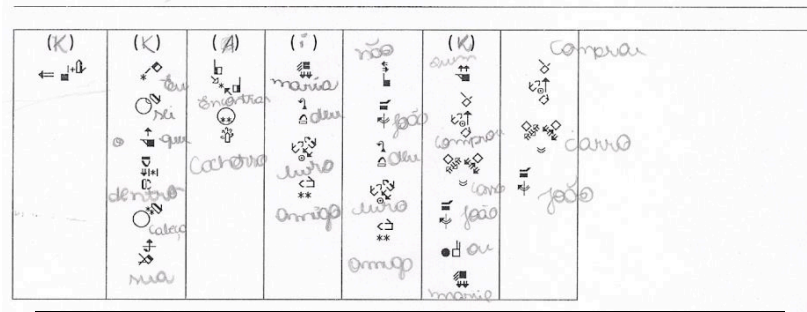 (K)
(K)
Eu
sei
o que
dentro
cabeça
sua
(A)
Encontrar
Cachorro
(i)
maria
deu
livro
amigo
não
João
deu
livro
amigo
(K)
quem
comprou
carro
João
ou
Comprou
carro
João